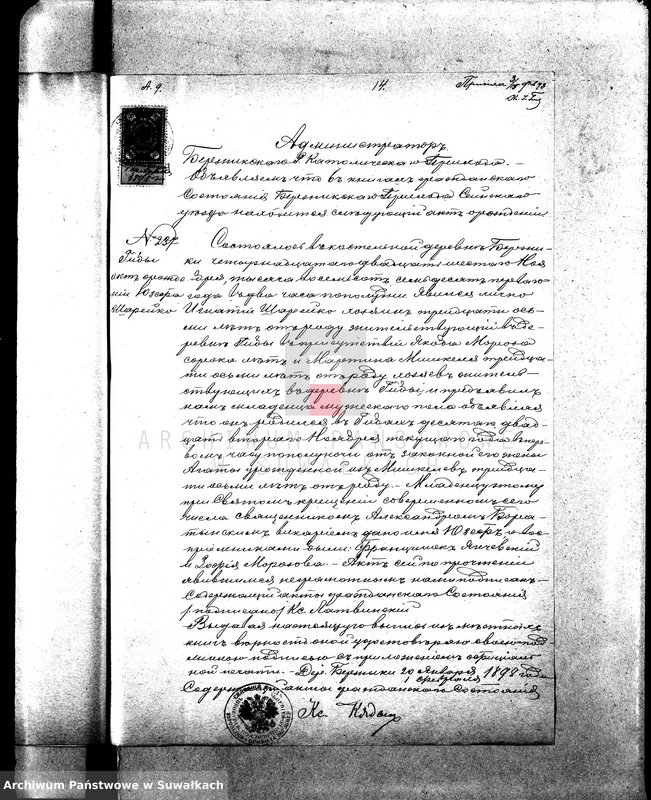 А. 9.
14.
Администраторъ
Берникскаго Р. Католическаго Прихода. –
Объявляемъ что въ книгахъ гражданскаго
Состоянія Берникскаго Прихода Сейнскаго
уѣзда находится слѣдующій актъ о рожденіи
№ 237
Гибы
Шарейко
Состоялось въ костельной деревнѣ Берни-
ки четырнадцатаго двадцать шестаго Ноя
бря, тысяча восемьсотъ семьдесятъ перваго
года въ два часа пополудни явился лично
Игнатій Шарейко хозяинъ тридцати ось-
ми лѣтъ отъ роду жительствующій въ де-
ревнѣ Гибы въ присутствіи Якова Мороза
сорока лѣтъ и Мартина Мишкеля тридца-
ти осьми лѣтъ отъ роду хозяевъ житель-
ствующихъ въ деревнѣ Гибы и предъявилъ
намъ младенца мужескаго пола объявляя
что онъ родился въ Гибахъ десятаго двад-
цать втораго Ноября текущаго года въ пер-
вомъ часу пополуночи отъ законной его жены
Агаты урожденной изъ Мишкелевъ тридца-
ти осьми лѣтъ отъ роду. – Младенцу тому
при Святомъ крещеніи совершенномъ сего
числа священникомъ Александромъ
викаріемъ дано имя Юзефъ а вос-
пріемниками были: Францишекъ
и Зофія Морозова. – Актъ сей по прочтеніи
явившимся неграмотнымъ нами подписанъ –
Содержащій акты гражданскаго Состоянія
/подписано/ Кс. Матвинскій
Выдавая настоящую выпись изъ мѣстныхъ
книгъ вѣрность оной удостовѣряю своеюпод-
линною подписью съ приложеніемъ офиціаль-
ной печати. – Дер. Берники 20 Января 1898 года
1 Февраля
Содержащій акты гражданскаго Состоянія
Кс.
Archiwum Państwowe w Suwałkach